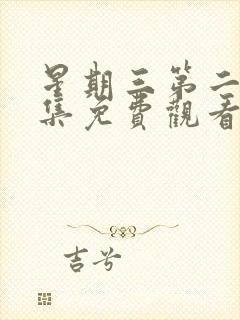 星期三第二
集免費觀看
吉兮